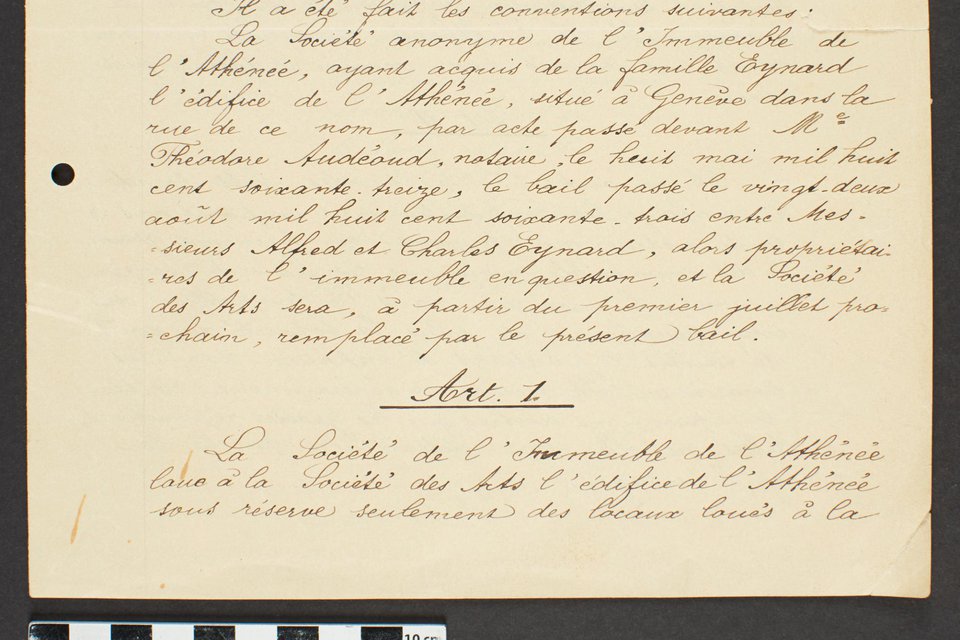 Il a été fait les conventions suivantes:
La Société anonyme de l'Immeuble de
l'Athénée, ayant acquis de la famille Eynard
l'édifice de l'Athénée, situé à Genève dans la
rue de ce nom, par acte passé devant Me
Théodore Audéoud, notaire, le huit mai mil huit
cent soixante-treize, le bail passé le vingt-deux
août mil huit cent soixante-trois entre Mes-
-sieurs Alfred et Charles Eynard, alors propriétai-
-res de l'immeuble en question, et la Société
des Arts sera, à partir du premier juillet pro-
-chain, remplacé par le présent bail.
Art. 1.
La Société de l'Immeuble de l'Athénée
loue à la Société des Arts l'édifice de l'Athénée
sous réserve seulement des locaux loués à la
10 cm